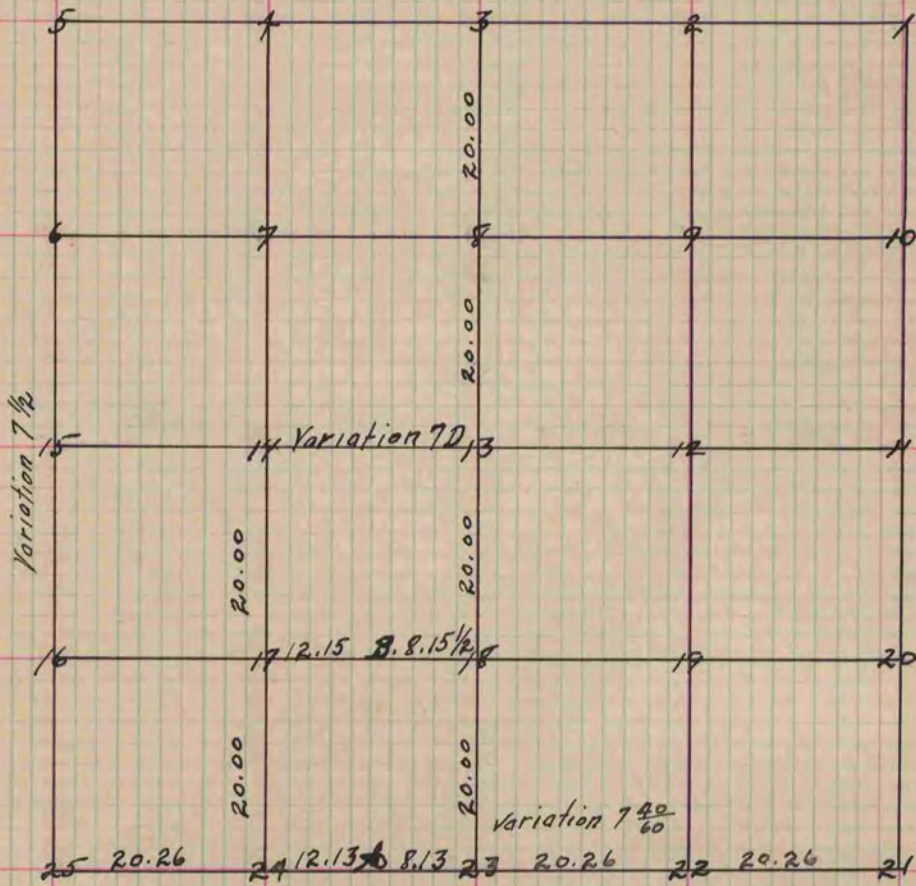 5 4 3 2 1
20.00
6 7 8 9 10
20.00
Variation 7 1/2
15 14 Variation 7D 13 12 11
20.00 20.00
16 17 12.15 B. 8.15 1/2 18 19 20
20.00 20.00
Variation 7 40/60
25 20.26 24 12.13 8.13 23 20.26 22 20.26 21